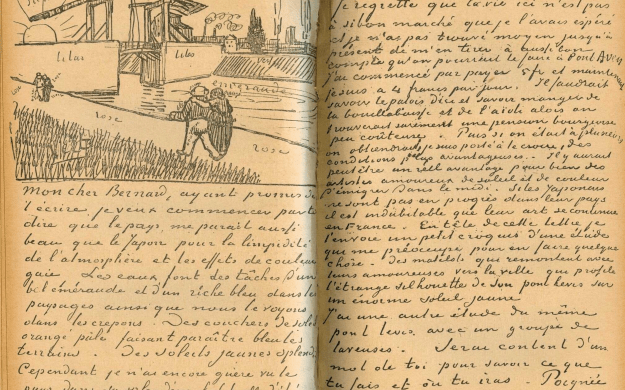 Lilas
Lilas
vert
orangé
rose
rose
rose
Mon cher Bernard, ayant promis de
t'écrire, je veux commencer par te
dire que le pays me parait aussi
beau que le Japon pour la limpidité
de l'atmosphère et les effets de couleur
gaie. Les eaux font des tâches d'un
bel éméraude et d'un riche bleu dans les
paysages ainsi que nous le voyons
dans les crepons. Des couchers de soleil
orangé pâle faisant paraitre bleu les
terrains. Des soleils jaunes splend
Cependant je n'ai encore guère vu le
je regrette que la vie ici n'est pas
à si bon marché que je l'avais espéré
et je n'ai pas trouvé moyen jusqu'à
présent de m'en tirer à aussi bon
compte qu'on pourrait le faire à Pont Aven
j'ai commencé par payer 5 fr et maintenant
je suis à 4 francs par jour. Il faudrait
savoir le patois d'ici et savoir manger de
la bouillabaisse et de l'aïoli alors on
trouverait surement une pension bourgeoise
peu couteuse. Puis si on était à plusieurs
on obtiendrait je suis porté à le croire, des
conditions plus avantageuses. Il y aurait
peut être un reel avantage pour bien des
artistes amoureux de soleil et de couleur
d'émigrer dans le midi. Si les Japonais
ne sont pas en progrès dans leur pays
il est indubitable que leur art se continue
en France. En tête de cette lettre je
t'envoie un petit croquis d'une étude
qui me préoccupe pour en faire quelque
chose. Des matelots qui remontent avec
leurs amoureuses vers la ville qui profile
l'étrange silhouette de son pont levis sur
un énorme soleil jaune
j'ai une autre étude du même
pont levis avec un groupe de
laveuses. Serai content d'un
mot de toi pour savoir ce que
tu fais et où tu iras. Poignée